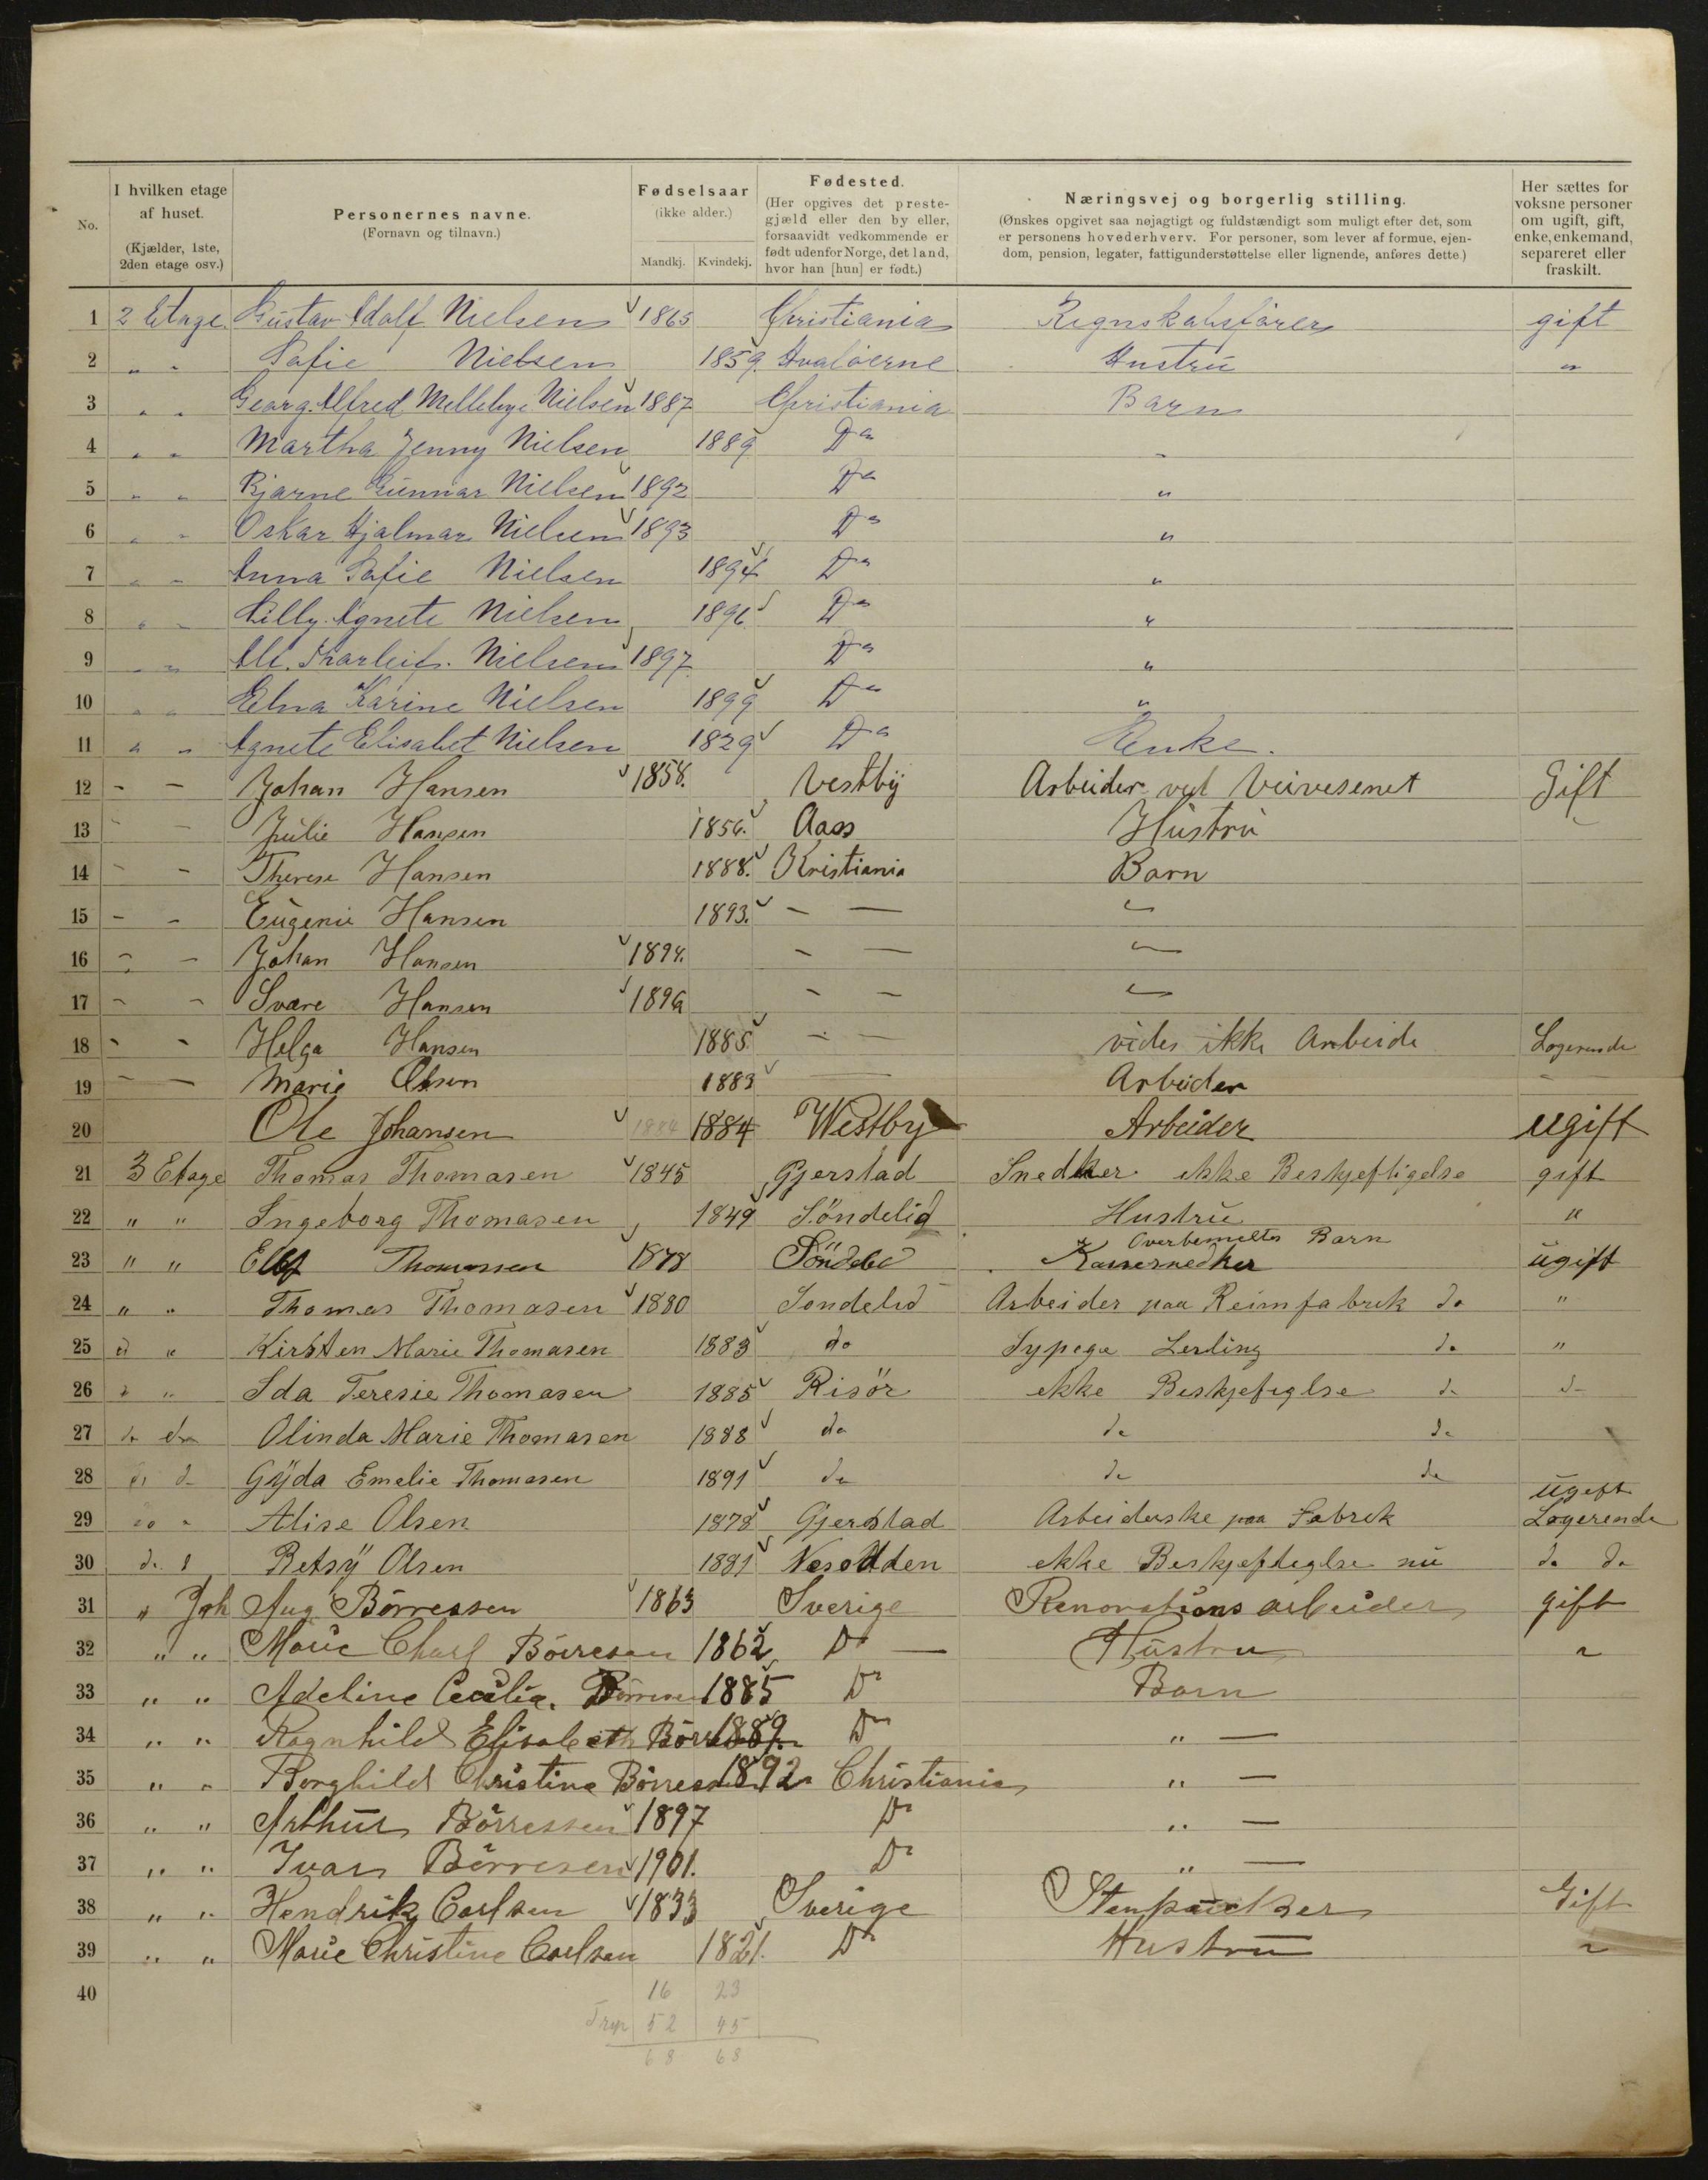 No.
I hvilken etage af huset.
(Kjælder, 1ste, 2den etage osv.)
Personernes navne.
(Fornavn og tilnavn.)
Fødselsaar
(ikke alder.)
Mandkj. Kvindekj.
Fødested.
(Her opgives det preste-
gjæld eller den by eller,
forsaavidt vedkommende er
født udenfor Norge, det land,
hvor han [hun] er født.)
Næringsvej og borgerlig stilling.
(Ønskes opgivet saa nøjagtigt og fuldstændigt som muligt efter det, som
er personens hovederhverv. For personer, som lever af formue, ejen-
dom, pension, legater, fattigunderstøttelse eller lignende, anføres dette.)
Her sættes for
voksne personer
om ugift, gift,
enke, enkemand,
separeret eller
fraskilt.
1 2 Etage Gustav Adolf Nielsen 1865 Christiania Regnskabsfører gift
2 „ „ Sofie Nielsen 1859 Hvaløerne Hustru „
3 „ „ Georg Alfred Nielsen 1887 Christiania Barn
4 „ „ Martha Jenny Nielsen 1889 Do „
5 „ „ Bjarne Gunnar Nielsen 1892 Do „
6 „ „ Oskar Hjalmar Nielsen 1893 Do „
7 „ „ Anna Sofie Nielsen 1894 Do „
8 „ „ Lilly Agnete Nielsen 1896 Do „
9 „ „ Tharleif Nielsen 1897 Do „
10 „ „ Edna Karine Nielsen 1899 Do „
11 „ „ Agnete Elisabet Nielsen 1829 Do Enke.
12 - - Johan Hansen 1858. Vestby Arbeider ved Veivesenet Gift
13 - - Julie Hansen 1856. Aass Hustru
14 - - Therese Hansen 1888. Kristiania Barn
15 - - Eugenie Hansen 1893. - - „
16 - - Johan Hansen 1894. - - „
17 - - Svare Hansen 1896 - - „
18 - - Helga Hansen 1885 - - vides ikke Arbeide Logerende
19 - - Marie Olsen 1883 — Arbeider -
20 Ole Johansen 1884 1884 Westby Arbeider ugift
21 3 Etage Thomas Thomasen 1845 Gjerstad Snedker ikke Beskjeftigelse gift
22 " " Ingeborg Thomasen 1849 Söndelid Hustru "
Overbemeltes Barn
23 " " Thomassen 1878 Söndeled ugift
24 " " Thomas Thomasen 1880 Sondelid Arbeider paa Reimfabrik do "
25 " " Kirsten Marie Thomasen 1883 do Sypige Lerling do "
26 " " Ida Teresie Thomasen 1885 Risör ekke Beskjefiglse do do
27 do do Olinda Marie Thomasen 1888 do do do
28 do do Gÿda Emelie Thomasen 1891 do do do
ugift
29 do " Alise Olsen 1878 Gjerstad Arbeiderske paa Fabrek Logerende
30 do Betsÿ Olsen 1881 Nesodden ekke Beskjefteglse nu do do
31 " Joh Aug Börressen 1863 Sverige Renovations arbeider gift
32 " " Marie Charl Börresen 1862 Do — Hustru "
33 " " Adeline Cecilie Börresen 1885 Do Barn
34 " " Ragnhild Elisabeth 1889. Do " —
35 " " Borghild Christine Börresen 1892 Christiania " —
36 " " Arthur Börressen 1897 Do " —
37 " " Ivar Börresen 1901. Do " —
38 " " Hendrik Carlsen 1833 Sverige Gift
39 " " Marie Christine Carlsen 1821. Do Hustru "
40
16 23
52 45
68 68